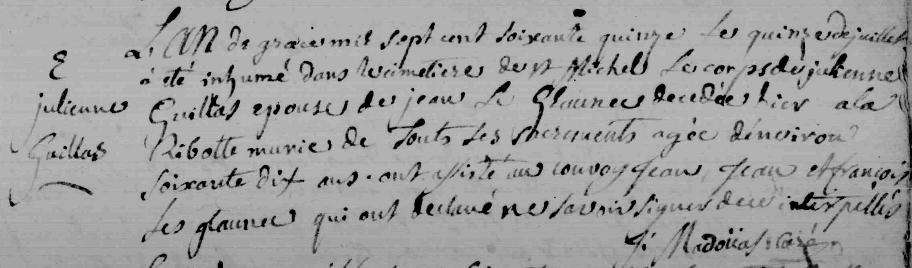 L'AN de grace mil sept cent soixante quinze le quinze de juillet
a été inhumé dans le cimetiere de st Michel le corps de julienne
E
julienne
Guillas
Guillas epouse de jean Le Glaunec decedée hier a la
Ribotte munie de touts les sacrements agée d'environ
soixante dix ans. ont assisté au convoy jean, jean et françois
les glaunec qui ont declaré ne savoir signer de ce interpellés
Madoüas